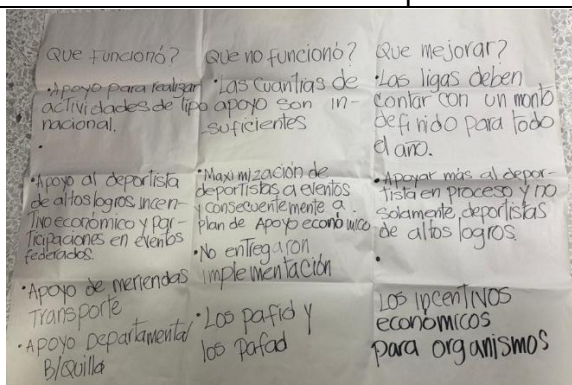 Que funcionó?
• Apoyo para realizar
actividades de tipo
nacional.
•
• Apoyo al deportista
de altos logros incen-
tivo económico y par-
ticipaciones en eventos
federados.
• Apoyo de meriendas
Transporte
• Apoyo Departamental
B/Quilla
Que no funcionó?
• Las cuantias de
apoyo son in-
suficientes
• Maximización de
deportistas a eventos
y consecuentemente a
plan de Apoyo económico
• No entregaron
implementación
• Los pafid y
los pafad
Que mejorar?
• Las ligas deben
contar con un monto
definido para todo
el año.
• Apoyar más al depor-
tista en proceso y no
solamente, deportistas
de altos logros.
•
Los incentivos
económicos
para organismos